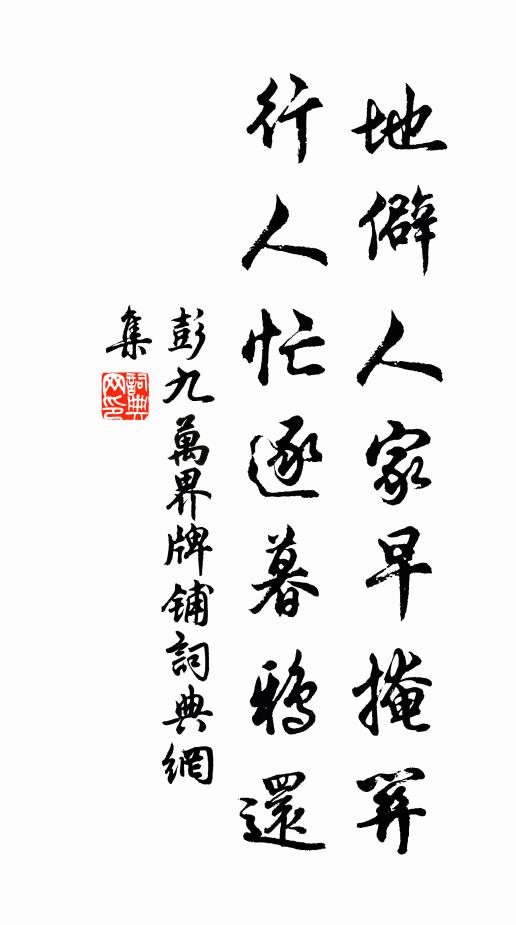 地僻人家早掩關
行人忙逐暮鴉還
彭九萬界牌鋪詞典網
集
詞典
网印